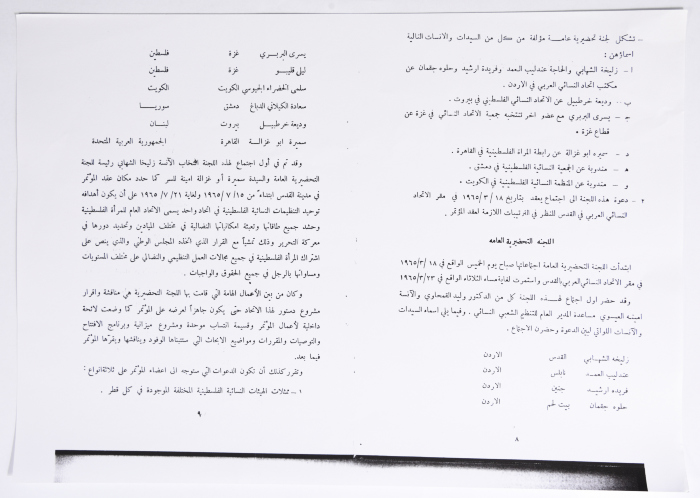 – تشكل لجنة تحضيرية عامة مؤلفة من كل من السيدات والانسات التالية
اسماؤهن :
ا – زليخة الشهابي والحاجة عندليب العمد وفريدة ارشيد وحلوه جقمان عن
مكتب اتحاد النسائي العربي في الأردن .
ب – وديعة خرطبيل عن الاتحاد النسائي الفلسطيني في بيروت .
ج – يسرى البربري مع عضو اخر تنتخبه جمعية الاتحاد النسائي في غزة عن
قطاع غزة .
د – سميره ابو غزالة عن رابطة المرأة الفلسطينية في القاهرة .
ه – مندوبة عن الجمعية النسائية الفلسطينية في دمشق .
و – مندوبة عن المنظمة النسائية الفلسطينية في الكويت .
٢ – دعوة هذه اللجنة الى اجتماع يعقد بتاريخ ١٨ /٣/ ١٩٦٥ في مقر الاتحاد
النسائي العربي في القدس للنظر في الترتيبات اللازمة لعقد المؤتمر .
اللجنة التحضيرية العامه
ابتدأت اللجنة التحضيرية العامة اجتماعاتها صباح يوم الخميس الواقع في ١٩٦٥/٣/١٨
في مقر الاتحاد النسائي العربي القدس واستمرت لغاية مساء الثلاثاء الواقع في ١٩٦٥/٣/٢٣
وقد حضر اول اجتماع لهذه اللجنة كل من الدكتور وليد القمحاوي والآنسة
امينه العيسوي مساعدة المدير العام للتنظيم الشعبي النسائي . وفيما يلي اسماء السيدات
والآنسات اللواتي لبين الدعوة وحضرن الاجتماع .
زليخه الشهابي القدس الاردن
عندليب العمد نابلس الاردن
فريده ارشيد جنين الاردن
حلوه جقمان بيت لحم الاردن
٨
يسرى البربري غزة فلسطين
ليلى قليبو غزة فلسطين
سلمى الخضراء الجيوسي الكويت الكويت
سعادة الكيلاني الدباغ دمشق سوريا
وديعة خرطبيل بيروت لبنان
سميرة ابو غزالة القاهرة الجمهورية العربية المتحدة
وقد تم في أول اجتماع لهذه اللجنة انتخاب الآنسة زليخا الشهابي رئيسة للجنة
التحضيرية العامة والسيدة سميرة أبو غزالة امينة للسر كما حدد مكان عقد المؤتمر
في مدينة القدس ابتداءً من ١٥ /٧/ ١٩٦٥ ولغاية ٢١ /٧/ ١٩٦٥ على أن يكون أهدافه
توحيد التنظيمات النسائية الفلسطينية في اتحاد واحد يسمى الاتحاد العام للمرأة الفلسطينية
وحشد جميع طاقاتها وتعبئة امكانياتها النضالية في مختلف الميادين وتحديد دورها في
معركة التحرير وذلك تمشياً مع القرار الذي اتخذه المجلس الوطني والذي ينص على
اشتراك المرأة الفلسطينية في جميع مجالات العمل التنظيمي والنضالي على مختلف المستويات
ومساواتها بالرجل في جميع الحقوق والواجبات .
وكان من بين الأعمال الهامة التي قامت بها اللجنة التحضيرية هي مناقشة واقرار
مشروع دستور لهذا الاتحاد حتى يكون جاهزاً لعرضه على المؤتمر كما وضعت لائحة
داخلية لأعمال المؤتمر وقسيمة انتساب موحدة ومشروع ميزانية وبرنامج الافتتاح
والتوصيات والمقررات ومواضيع الابحاث التي ستتبناها الوفود ويناقشها ويقرها المؤتمر
فيما بعد.
وتقرر كذلك أن تكون الدعوات التي ستوجه الى اعضاء المؤتمر على ثلاثة انواع :
١ – ممثلات الهيئات النسائية الفلسطينية المختلفة الموجودة في كل قطر .
٩